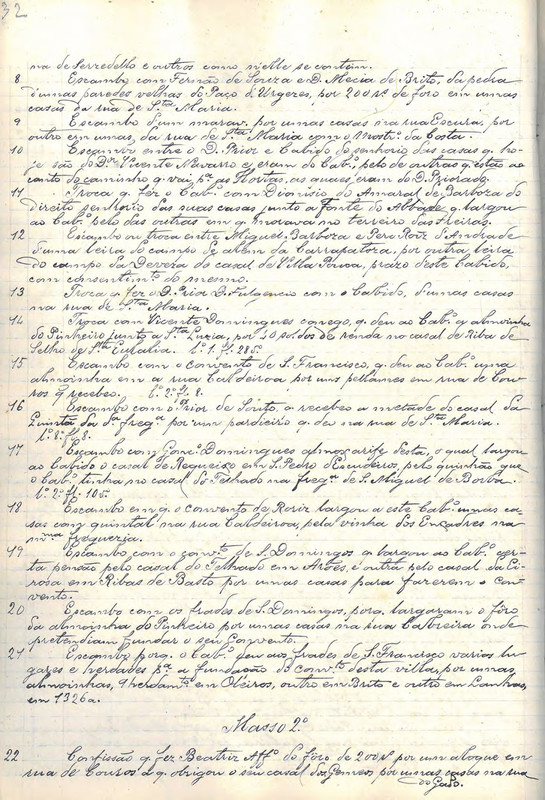 32
na de Serzedello e outros como nelle se contem.
8 Escambo com Fernão de Souza e D. Mecia de Brito, da pedra
d'umas paredes velhas do Paço d'Urgezes, por 200 rs de foro em umas
casas da rua de Sta Maria.
9 Escambo d'um marav. por umas casas na rua Escura, por
outro em umas, da rua de Sta Maria com o Mostro da Costa.
10 Escambo entre o D. Prior e Cabido do senhorio das casas q. ho-
je são do Dr Vicente Navarro e eram do Cabo pelo de outras q. estão ao
canto do caminho q. vai pa as Hortas, as quaes eram do D. Priorado.
11 Troca q. fez o Cabo com Dionisio do Amaral de Barboza do
direito senhorio das suas casas junto a Fonte do Abbade q. largou
ao Cabo pelo das outras em q. morava no terreiro das Freiras.
12 Escambo ou troca entre Miguel Barboza e Pero Roiz d'Andrade
d'uma leira do campo de alem da Carrapatoza, por outra leira
do campo da Deveza do casal de Va Ma Pouca, prazo deste Cabido,
com consentimto do mesmo.
13 Troca q. fez o D. Prior D. Fulgencio com o Cabido, d'umas casas
na rua de Sta Maria.
14 Troca com Vicente Domingues conego, q. deu ao Cabo a almoinha
do Pinheiro junto a Sta Luzia, por 40 soldos de renda no casal de Riba de
Selho de Sta Eulalia. Lo 1. fl. 285.
15 Escambo com o convento de S. Francisco, q. deu ao Cabo uma
almoinha em a rua Caldeiroa por uns pellames em rua de Cou-
ros q. recebeo. Lo 2. fl. 8.
16 Escambo com o Prior de Souto, q. recebeo a metade do casal da
Quintã da da frega por um pardieiro q. deu na rua de Sta Maria.
Lo 2. fl. 8.
17 Escambo com Gomo Domingues almoxarife desta, o qual largou
ao Cabido o casal de Requeixo em S. Pedro Escudeiro, pelo quinhão que
o Cabo tinha no casal do Telhado na frega de S. Miguel de Borba.
Lo 2. fl. 105.
18 Escambo em q. o convento de Roriz largou a este Cabo umas ca-
sas com quintal na rua Caldeiroa, pela vinha dos Ençadres na
mma freguezia.
19 Escambo com o convto de S. Domingos q. largou ao Cabo cer-
ta pensão pelo casal do Telhado em Arões, e outra pelo casal da Ei-
rósa em Ribas de Basto por umas casas para fazerem o con-
vento.
20 Escambo com os frades de S. Domingos, porq. largaram o fôro
da almoinha do Pinheiro por umas casas na rua Cabreira onde
pretendiam fundar o seu Convento.
21 Escambo porq. o Cabo deu aos frades de S. Francisco varios lu-
gares e herdades pa a fundação do Convto desta villa, por umas
almoinhas, 1 herdamto em Oleiros, outro em Brito e outro em Lanhas,
em 1326 a.
Masso 2.º
22 Confissão q. fez Beatriz Affo do fôro de 200 rs por um aloque em
rua de Couros a q. obrigou o seu casal dos Gemeos por umas casas na rua
do Gado.